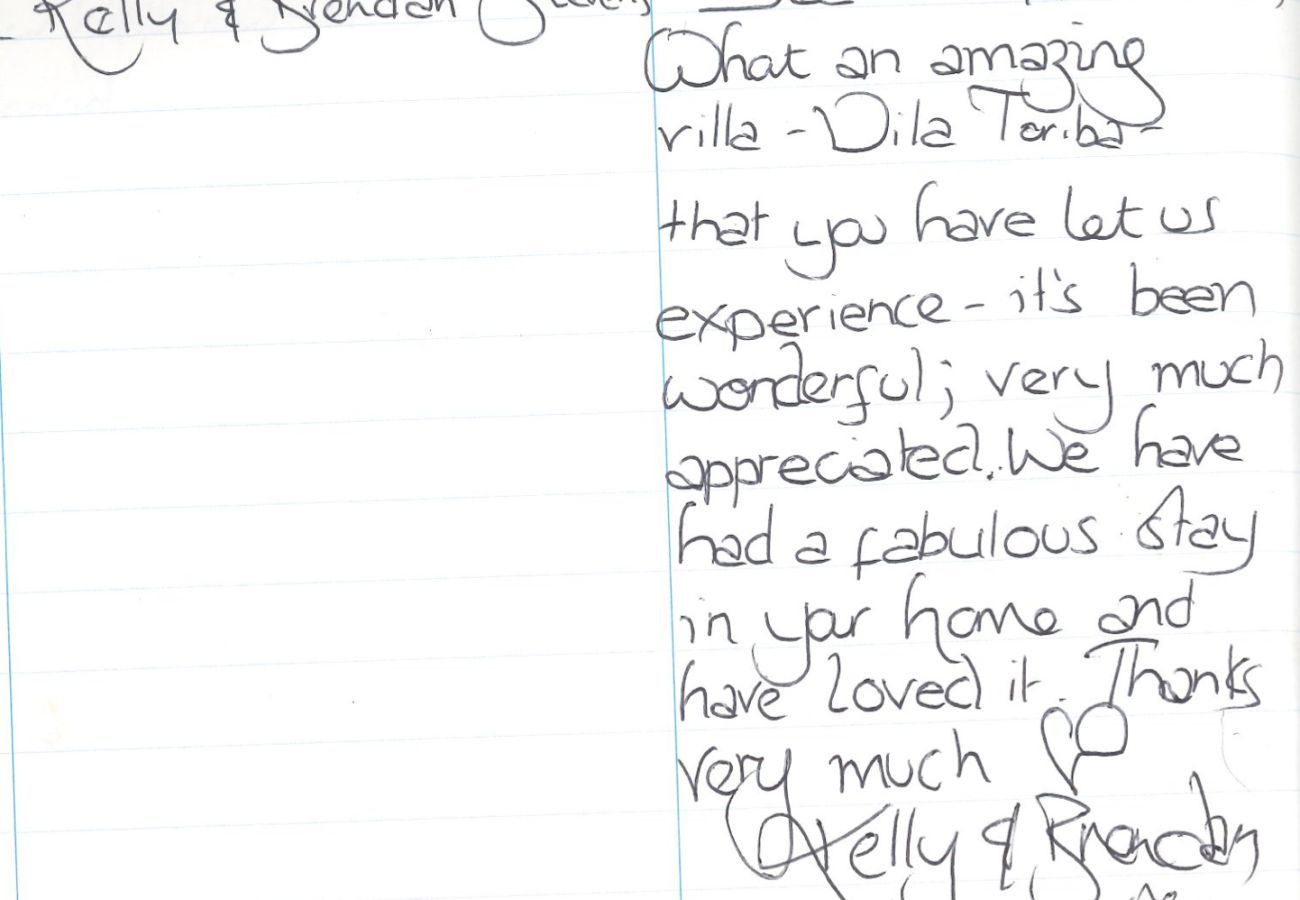 Kelly & Brendan
What an amazing
villa - Vila Toriba -
that you have let us
experience - it's been
wonderful; very much
appreciated. We have
had a fabulous stay
in your home and
have loved it. Thanks
very much ♡
Kelly & Brendan